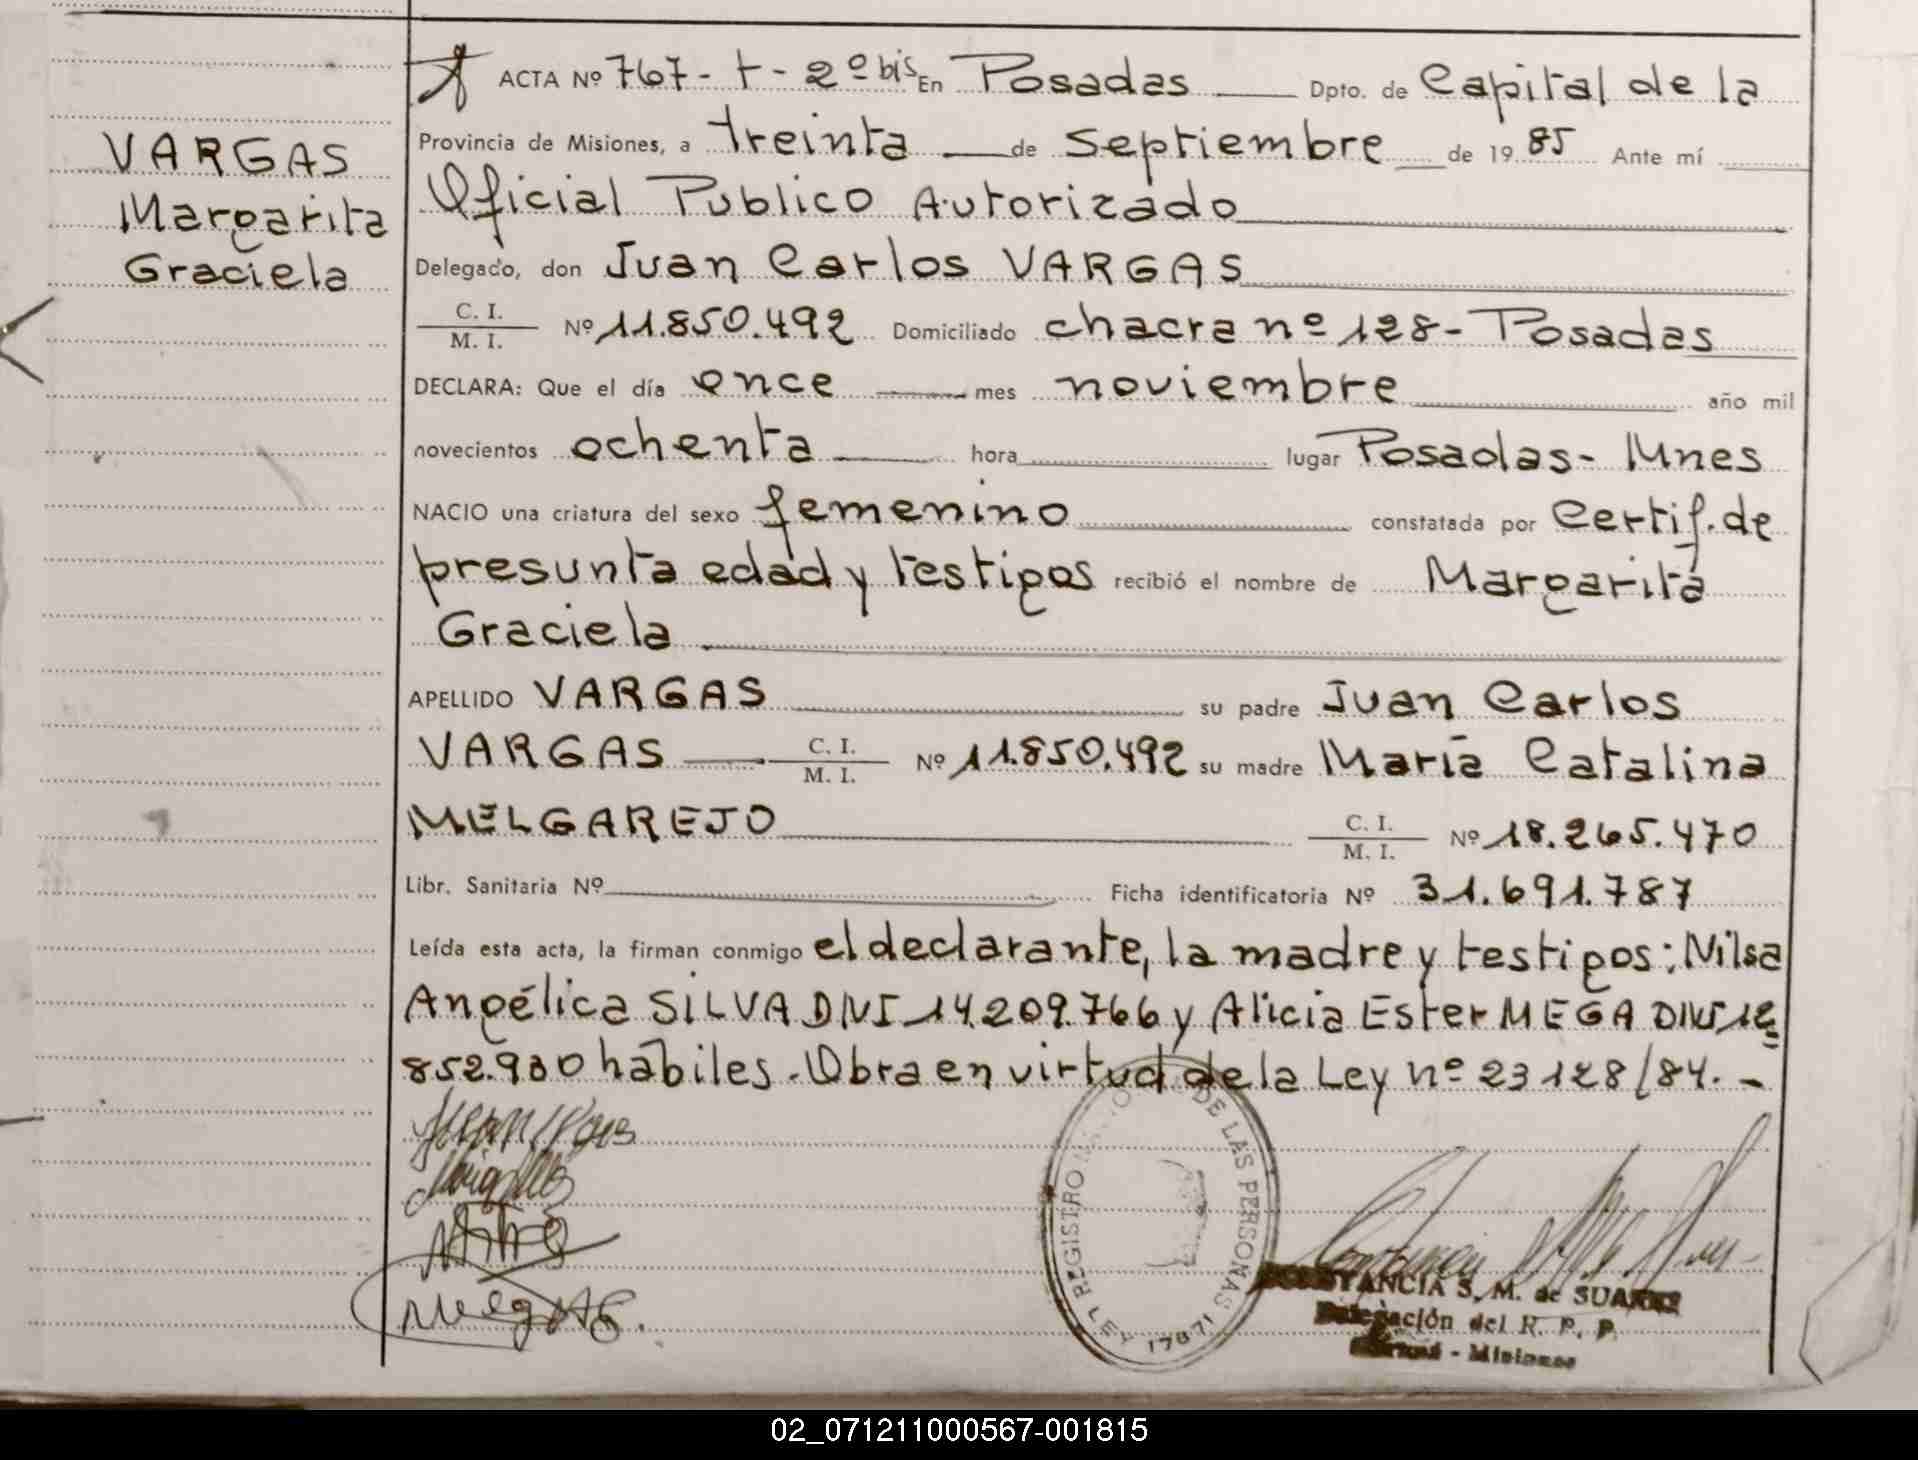 VARGAS
Margarita
Graciela
ACTA Nº 767 - t - 2º bis En Posadas Dpto. de Capital de la
Provincia de Misiones, a treinta de septiembre de 1985 Ante mí
Oficial Publico Autorizado
Delegado, don Juan Carlos VARGAS
C. I.
M. I. Nº 11.850.492 Domiciliado chacra nº 128 - Posadas
DECLARA: Que el día once mes noviembre año mil
novecientos ochenta hora lugar Posadas - Mnes
NACIO una criatura del sexo femenino constatada por Certif. de
presunta edad y testigos recibió el nombre de Margarita
Graciela
APELLIDO VARGAS su padre Juan Carlos
VARGAS C. I. M. I. Nº 11.850.492 su madre María Catalina
MELGAREJO C. I. M. I. Nº 18.265.470
Libr. Sanitaria Nº Ficha identificatoria Nº 31.691.787
Leída esta acta, la firman conmigo el declarante, la madre y testigos: Nilsa
Angélica SILVA DNI 14.209.766 y Alicia Ester MEGA DNI 12.
852.930 hábiles. Obra en virtud de la Ley nº 23128/84. -
REGISTRO NACIONAL DE LAS PERSONAS
LEY 17671
CONSTANCIA S. M. de SUAREZ
Delegación del R. P. P.
Posadas - Misiones
02_071211000567-001815